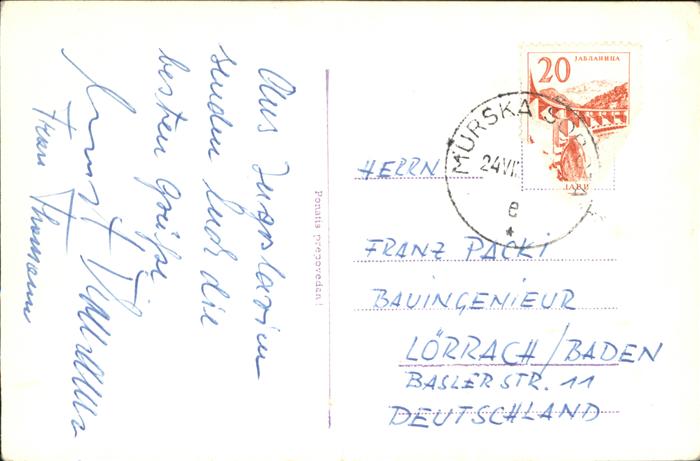 Aus Jugoslavien
senden Euch die
besten Grüße
Franz Thomann
Ponatis prepovedan!
20
ЈАБЛАНИЦА
MURSKA SOBOTA
24 VII
e
HERRN
FRANZ PACKI
BAUINGENIEUR
LÖRRACH/BADEN
BASLERSTR. 11
DEUTSCHLAND